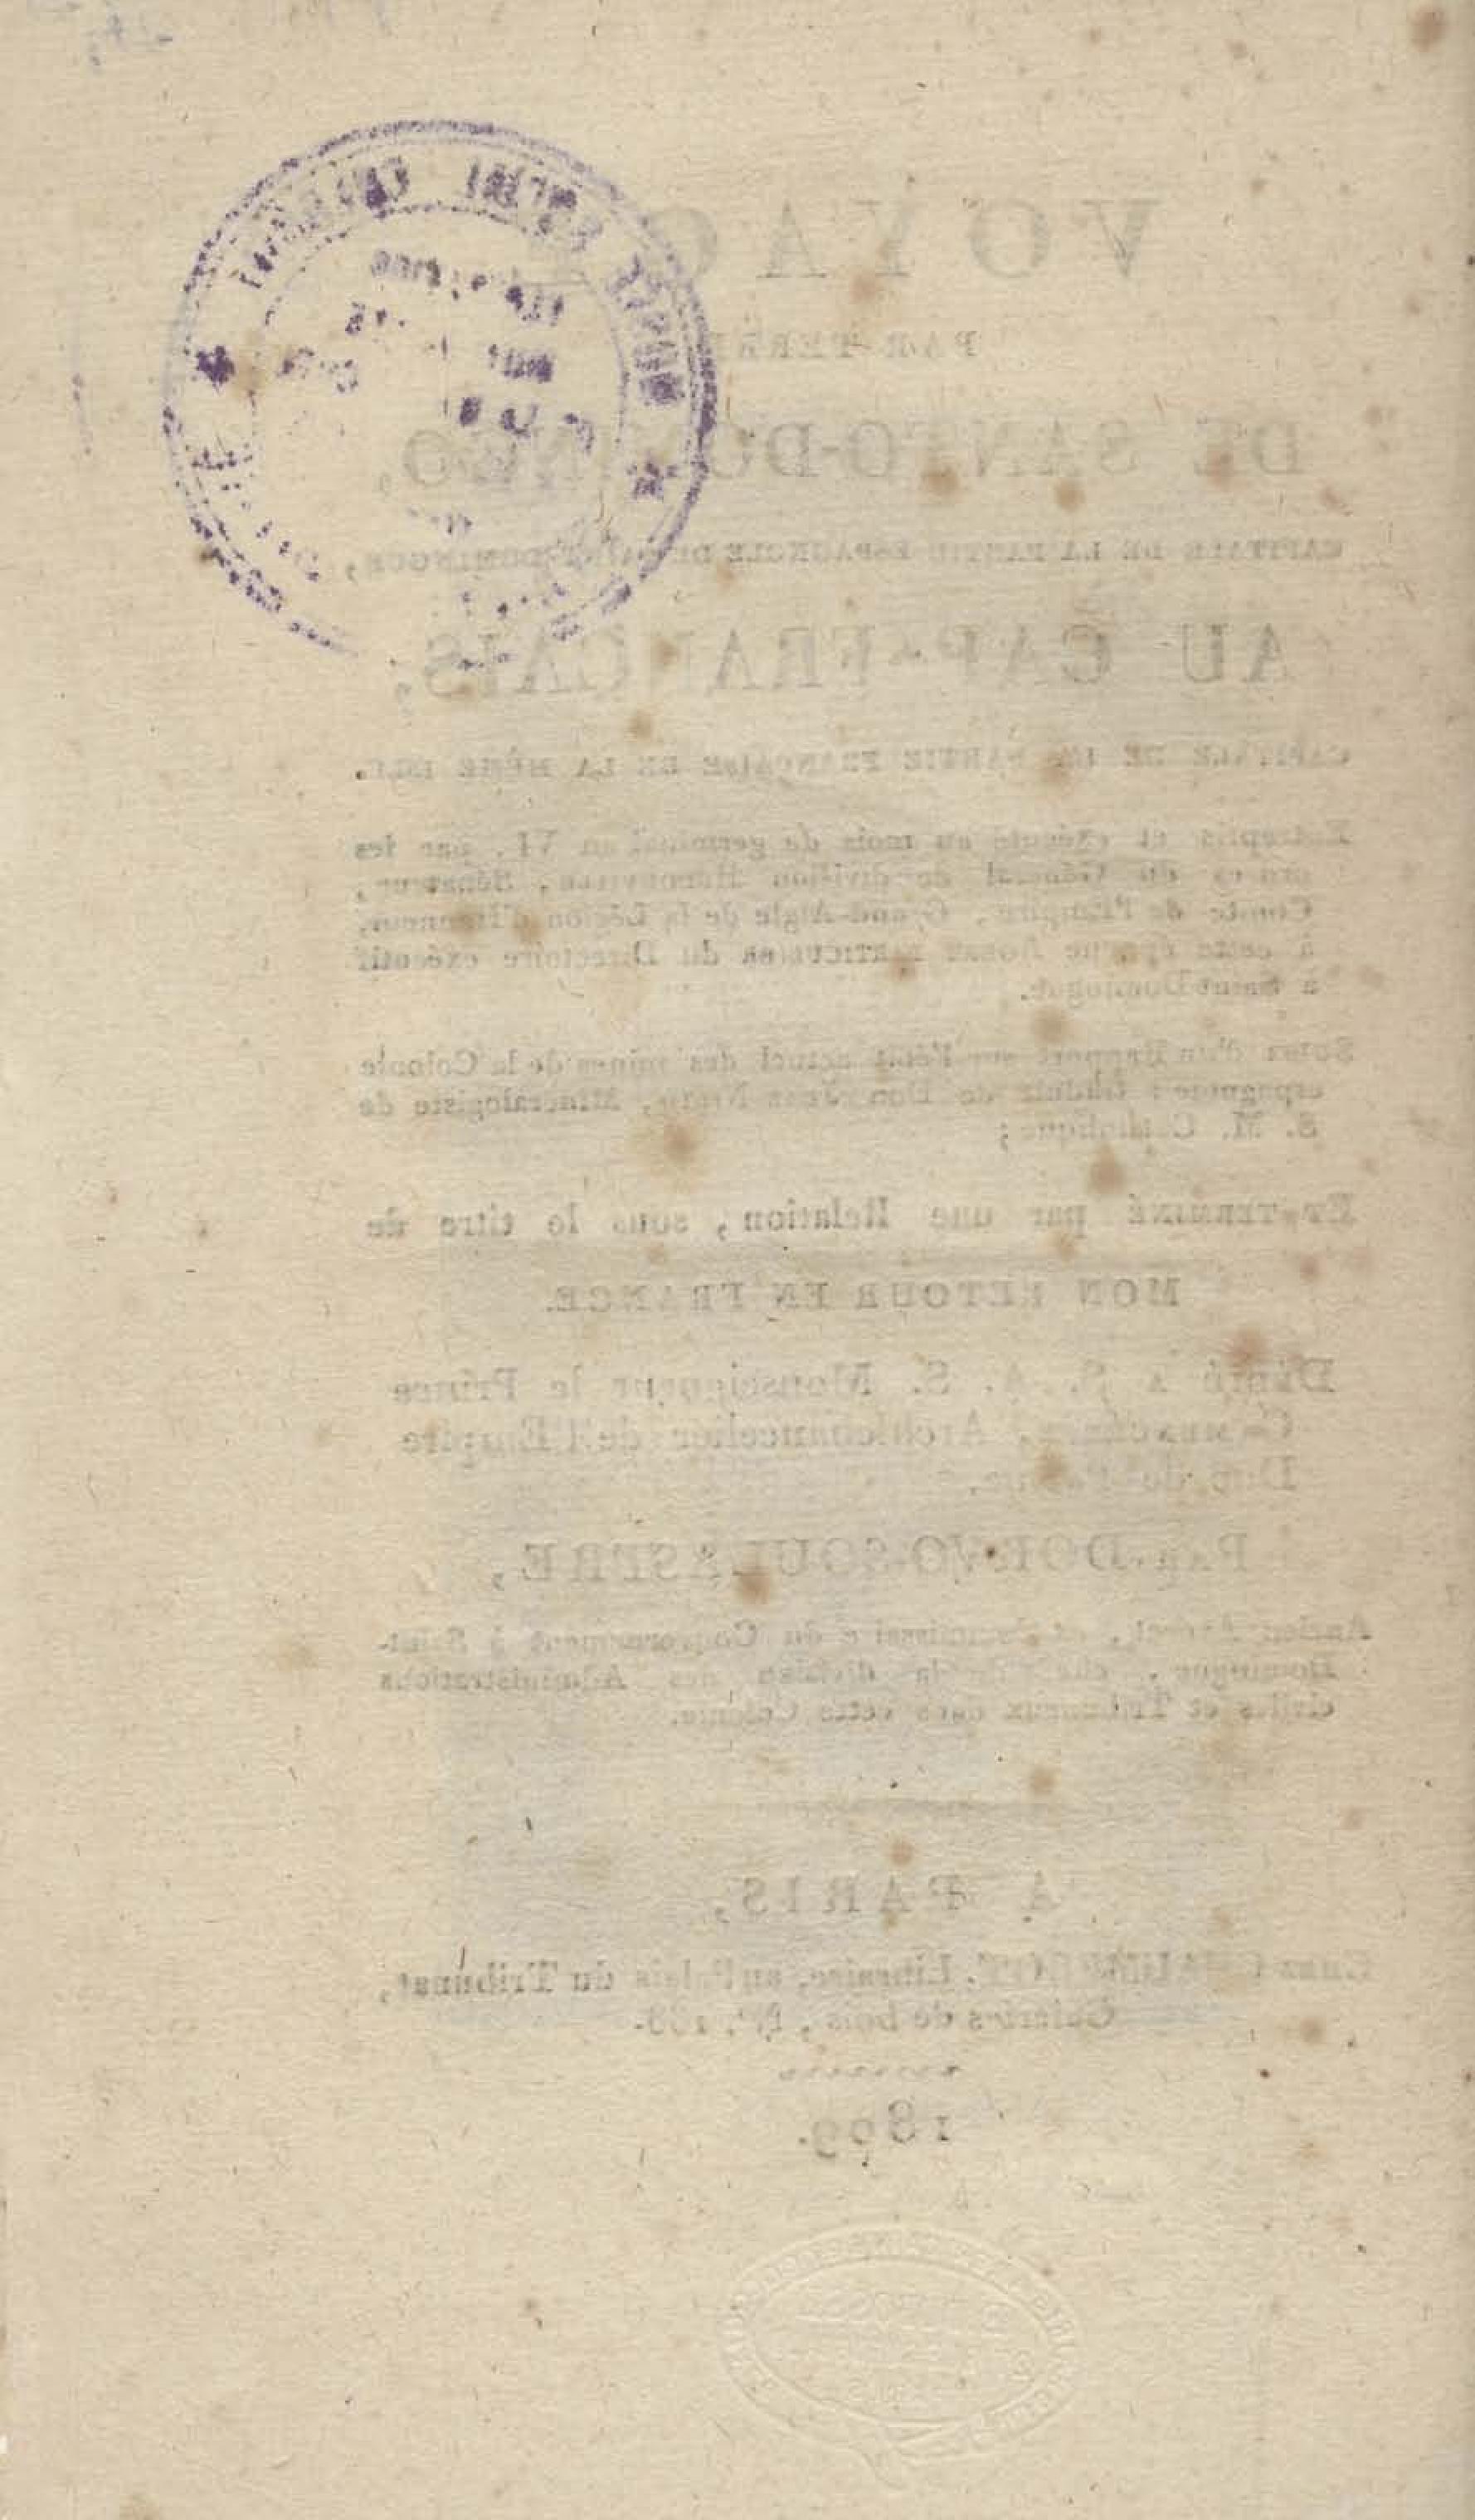 VOYAGE
PAR TERRE
DE SANTO-DOMINGO,
CAPITALE DE LA PARTIE ESPAGNOLE DE SAINT-DOMINGUE,
AU CAP-FRANÇAIS,
CAPITALE DE LA PARTIE FRANÇAISE DE LA MÊME ISLE.
Entrepris et exécuté au mois de germinal an VI, par les
ordres du Général de division Hédouville, Sénateur,
Comte de l'Empire, Grand-Aigle de la Légion d'Honneur,
à cette époque AGENT PARTICULIER du Directoire exécutif
à Saint-Domingue.
SUIVI d'un Rapport sur l'état actuel des mines de la Colonie
espagnole; traduit de Don Minéralogiste de
S. M. Catholique;
ET TERMINÉ par une Relation, sous le titre de
MON RETOUR EN FRANCE.
DÉDIÉ à S. A. S. Monseigneur le Prince
CAMBACÉRÈS, Archichancelier de l'Empire
Duc de Parme,
PAR DORVO-SOULASTRE,
Ancien Avocat, et Commissaire du Gouvernement à Saint-
Domingue, chef de la division des Administrations
civiles et Tribunaux dans cette Colonie.
A PARIS,
CHEZ CHAUMEROT, Libraire, au Palais du Tribunat,
Galeries de bois, N°. 188.
1809.